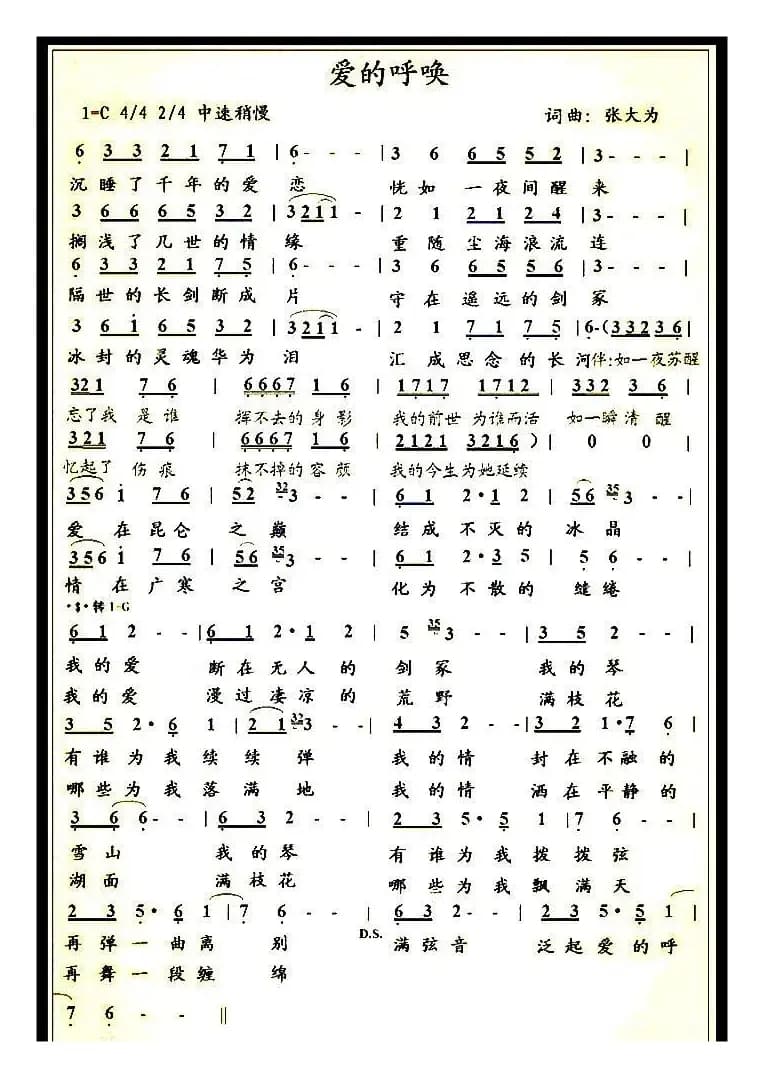 爱的呼唤
1=C 4/4 2/4 中速稍慢 词曲：张大为
6 3 3 2 1 7 1 | 6 - - - | 3 6 6 5 5 2 | 3 - - - |
沉睡了千年的爱恋 恍如一夜间醒来
3 6 6 6 5 3 2 | 3 2 1 1 - | 2 1 2 1 2 4 | 3 - - - |
搁浅了几世的情缘 重随尘海浪流连
6 3 3 2 1 7 5 | 6 - - - | 3 6 6 5 5 2 | 3 - - - |
隔世的长剑断成片 守在遥远的剑冢
3 6 1 6 5 3 2 | 3 2 1 1 - | 2 1 7 1 7 5 | 6 - (3 3 2 3 6 |
冰封的灵魂华为泪 汇成思念的长河伴:如一夜苏醒
3 2 1 7 6 | 6 6 6 7 6 | 1 7 1 7 1 7 1 2 | 3 3 2 3 6 |
忘了我是谁 挥不去的身影 我的前世为谁而活 如一瞬清醒
3 2 1 7 6 | 6 6 6 7 6 | 2 1 2 1 3 2 1 6 ) | 0 0 |
忆起了伤痕 抹不掉的容颜 我的今生为她延续
3 5 6 1 7 6 | 5 2 32 3 - | 6 1 2 · 1 | 5 6 35 3 - |
爱在昆仑之巅 结成不灭的冰晶
3 5 6 1 7 6 | 5 6 35 3 - | 6 1 2 · 3 5 | 5 6 - - |
情在广寒之宫 化为不散的缱绻
·$·转 1-G
6 1 2 - - | 6 1 2 · 1 2 | 5 35 3 - - | 3 5 2 - - |
我的爱 断在无人的剑冢 我的琴
我的爱 漫过凄凉的荒野 满枝花
3 5 2 · 6 1 | 2 1 32 3 - - | 4 3 2 - - | 3 2 1 · 7 6 |
有谁为我续续弹 我的情 封在不融的
哪些为我落满地 我的情 洒在平静的
3 6 6 - - | 6 3 2 - - | 2 3 5 · 5 1 | 7 6 - - |
雪山 我的琴 有谁为我拨拨弦
湖面 满枝花 哪些为我飘满天
2 3 5 · 6 1 | 7 6 - - | 6 3 2 - - | 2 3 5 · 5 1 |
D.S.
再弹一曲离别 满弦音 泛起爱的呼
再舞一段缠绵
7 6 - - ||